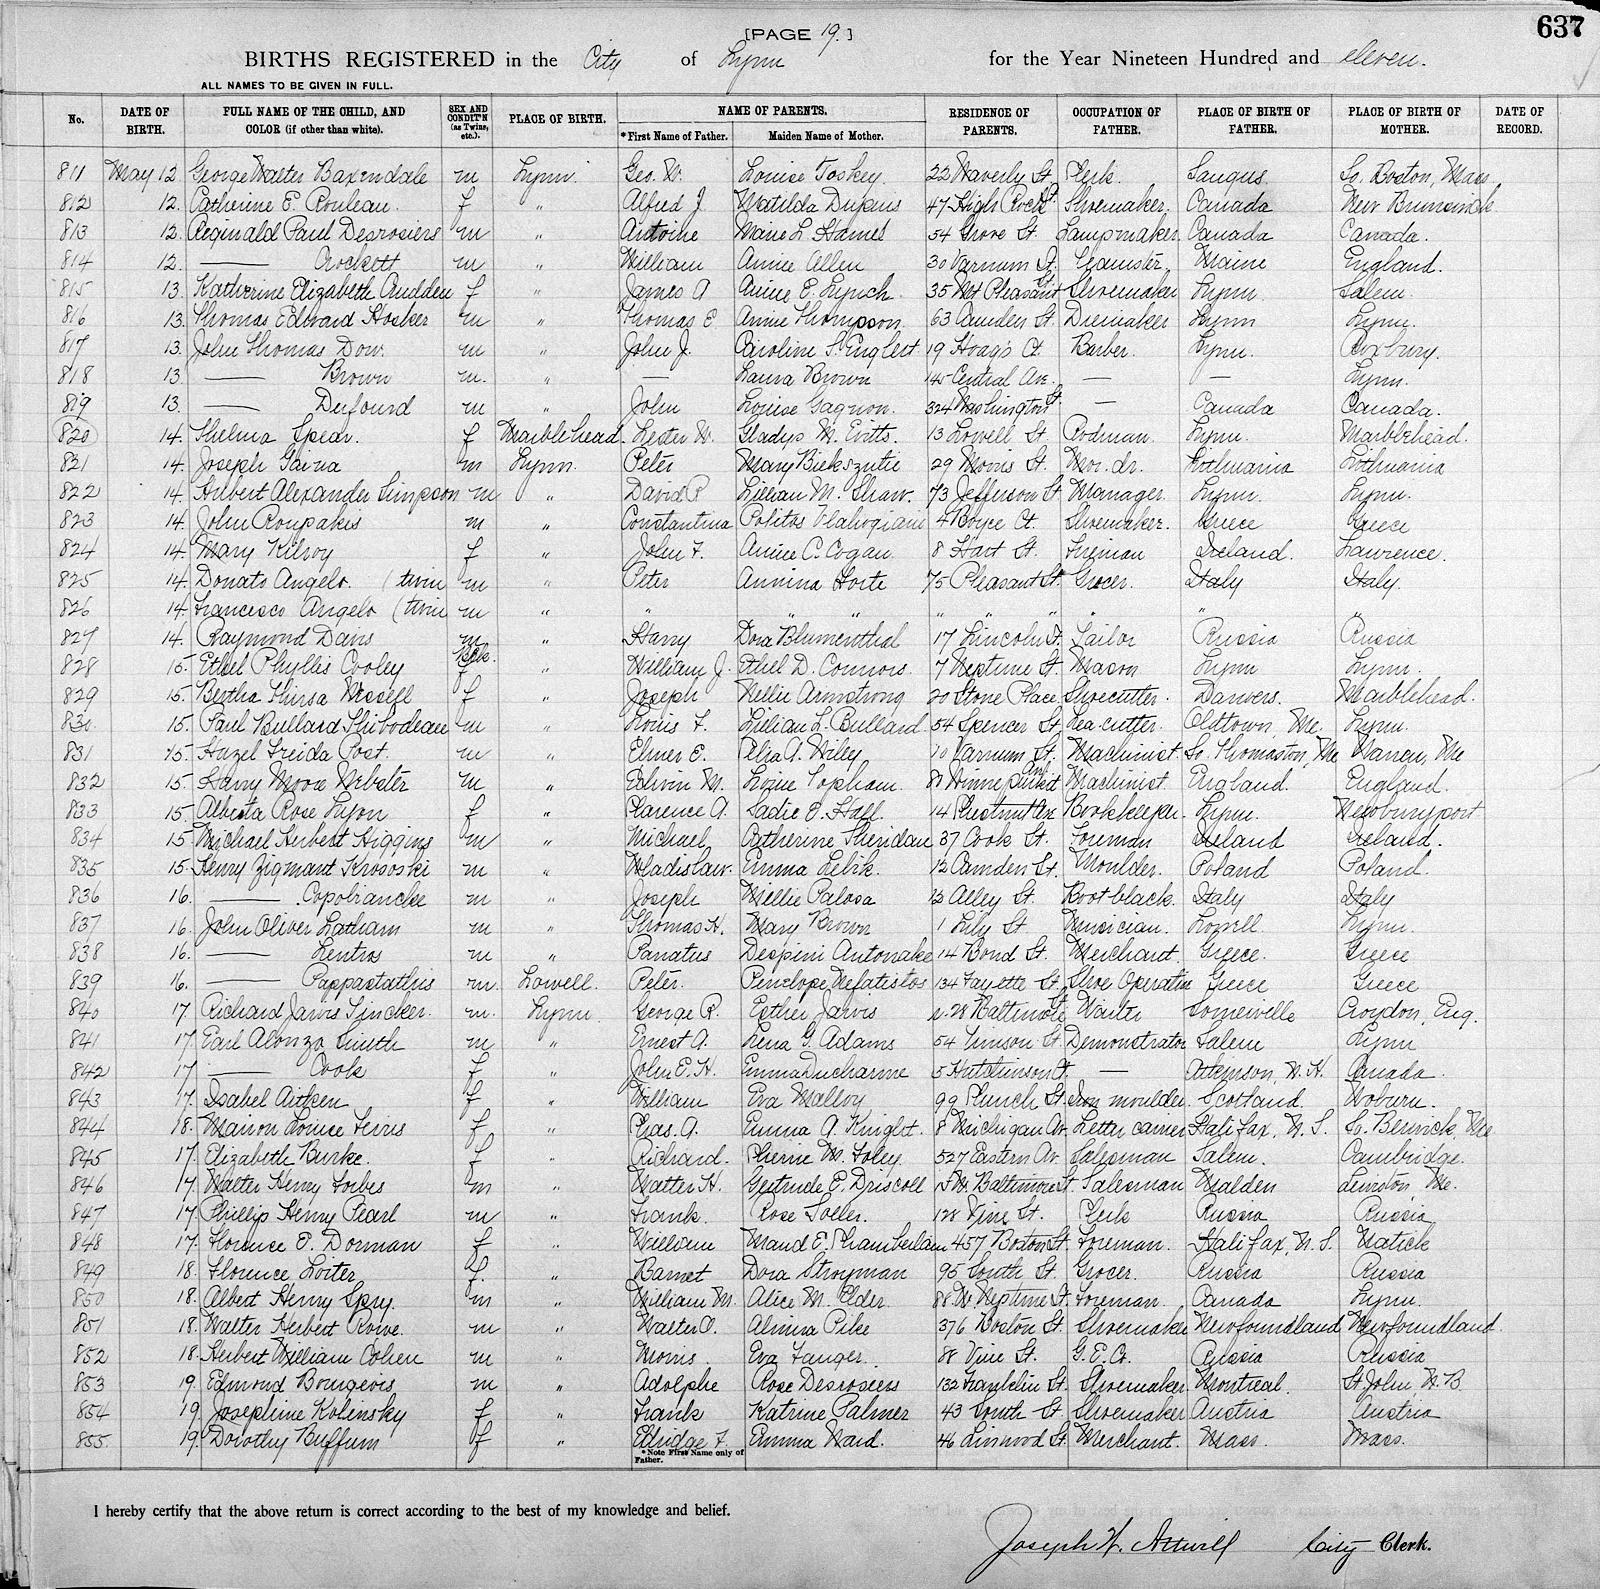 637
[PAGE 19.]
BIRTHS REGISTERED in the City of Lynn for the Year Nineteen Hundred and eleven.
ALL NAMES TO BE GIVEN IN FULL.
No. DATE OF BIRTH. FULL NAME OF THE CHILD, AND COLOR (if other than white). SEX AND CONDIT'N (as Twins, etc.). PLACE OF BIRTH. NAME OF PARENTS. *First Name of Father. Maiden Name of Mother. RESIDENCE OF PARENTS. OCCUPATION OF FATHER. PLACE OF BIRTH OF FATHER. PLACE OF BIRTH OF MOTHER. DATE OF RECORD.
811 May 12 George Walter Baxendale m Lynn. Geo. W. Louise Toskey. 22 Waverly St. Clerk. Saugus. So. Boston, Mass
812 12. Catherine E. Rouleau. f " Alfred J. Matilda 47 High Rock St Shoemaker. Canada New Brunswick
813 12. Reginald Paul Desrosiers m " Antoine Marie L. Hamel 54 Grove St. Lampmaker. Canada Canada.
814 12. — Crockett m " William Annie Allen 30 Varnum St. Teamster. Maine England.
815 13. Katherine Elizabeth Cudden f " James A Annie E. Lynch. 35 Mt Pleasant St Shoemaker Lynn. Salem.
816 13. Thomas Edward Hosker m " Thomas E. Annie Thompson. 63 Camden St. Diemaker Lynn Lynn.
817 13. John Thomas Dow. m " John J. Caroline S. Englert 19 Hoag's Ct. Barber. Lynn. Roxbury.
818 13. — Brown m. " — Laura Brown 145 Central Ave. — — Lynn.
819 13. — Dufourd m " John Louise Gagnon. 324 Washington St. — Canada Canada.
820 14. Thelma Spear. f Marblehead. Lester W. Gladys M. Evitts. 13 Lowell St. Rodman. Lynn. Marblehead.
821 14. Joseph Gaina m Lynn. Peter Mary 29 Morris St. Mor. dr. Lithuania Lithuania
822 14. Hubert Alexander Simpson m " David P. Lillian M. Shaw. 73 Jefferson St. Manager. Lynn. Lynn.
823 14. John Roupakis m " Constantina Politos 4 Boyce Ct. Shoemaker. Greece Greece
824 14. Mary Kilroy f " John F. Annie C. Cogan. 8 Hart St. Fireman Ireland. Lawrence.
825 14. Donato Angelo. (twin m " Peter Annina Forte 75 Pleasant St. Grocer. Italy Italy.
826 14. Francesco Angelo (twin m " " " " " " " "
827 14. Raymond Davis m " Harry Dora Blumenthal 17 Lincoln St. Tailor Russia Russia
828 15. Ethel Phyllis Cooley f " William J. Ethel D. Connors. 7 Neptune St. Mason Lynn Lynn.
829 15. Bertha Thirsa Wessell f " Joseph Nellie Armstrong 20 Stone Place. Shoecutter. Danvers. Marblehead.
830. 15. Paul Bullard Thibodeau m " Louis F. Lillian L. Bullard 54 Spencer St. Lea. cutter. Oldtown, Me. Lynn.
831 15. Hazel Freida Post. m " Elmer E. A. Wiley 10 Varnum St. Machinist. So. Thomaston, Me Warren, Me
832 15. Harry Moore Webster m " Edwin M. Lizzie Popham. Av. Machinist. England. England.
833 15. Alberta Rose Lyon f " Clarence A. Sadie E. Hall. 14 Chestnut Ave Bookkeeper. Lynn. Newburyport
834 15. Michael Herbert Higgins m " Michael Catherine Sheridan 37 Cook St. Foreman Ireland Ireland.
835 15. Henry Zigmant Krososki m " Wladislaw. Emma Lebik. 12 Camden St. Moulder. Poland Poland.
836 16. — Copobianche m " Joseph Millie Palosa Alley St. Bootblack. Italy Italy
837 16. John Oliver Latham m " Thomas H. Mary Brown 1 Lily St. Musician. Lowell Lynn.
838 16. — Lentros m " Panatus Despini Antonake 14 Bond St. Merchant. Greece. Greece
839 16. — Pappastathis m. Lowell. Peter. Penelope Nefatistos 134 Fayette St. Shoe Operative Greece Greece
840 17. Richard Jarvis Tincker. m. Lynn. George R. Esther Jarvis r. 28 Baltimore St Waiter Somerville Croydon, Eng.
841 17. Earl Alonzo Smith m " Ernest A. Lena G. Adams 54 Timson St. Demonstrator Salem Lynn
842 17 — Cook f " John E. H. Emma Ducharme 5 Hutchinson Ct. — Atkinson, N. H. Canada.
843 17. Isabel Aitken f " William Eva Malloy 99 Punch St. Iron moulder. Scotland Woburn.
844 18. Marion Louise Ferris f " Chas. A. Emma A. Knight. 8 Michigan Av. Letter carrier Halifax, N. S. So. Berwick, Me
845 17. Elizabeth Burke. f " Richard. Cherrie M. Foley. 527 Eastern Av. Salesman Salem. Cambridge.
846 17. Walter Henry Forbes m " Walter H. Gertrude E. Driscoll Baltimore St. Salesman Malden Lewiston, Me.
847 17. Phillip Henry Pearl m " Frank. Rose Toller. 128 Vine St. Clerk Russia Russia
848 17. Florence E. Dorman f " William Maud E. Chamberlain 457 Boston St. Foreman. Halifax, N. S. Natick
849 18. Florence Loiter f. " Barnet Dora Stroyman 95 South St. Grocer. Russia Russia
850 18. Albert Henry Spry. m " William M. Alice M. Elder. 88 W. Neptune St. Foreman. Canada Lynn.
851 18. Walter Herbert Rowe. m " Walter O. Almira Pike 376 Boston St. Shoemaker Newfoundland Newfoundland.
852 18. Herbert William Cohen m " Morris. Eva Fanger. 88 Vine St. G. E. Co. Russia Russia
853 19. Edmond Bourgeois m " Adolphe Rose Desrosiers 132 Franklin St. Shoemaker Montreal. St John, N. B.
854 19. Josephine Kolinsky f " Frank Katrine Palmer 43 South St Shoemaker Austria Austria
855. 19. Dorothy Buffum f " Elridge F. Emma Ward. 46 Linwood St. Merchant. Mass. Mass.
*Note First Name only of Father.
I hereby certify that the above return is correct according to the best of my knowledge and belief.
Joseph W. Attwill City Clerk.